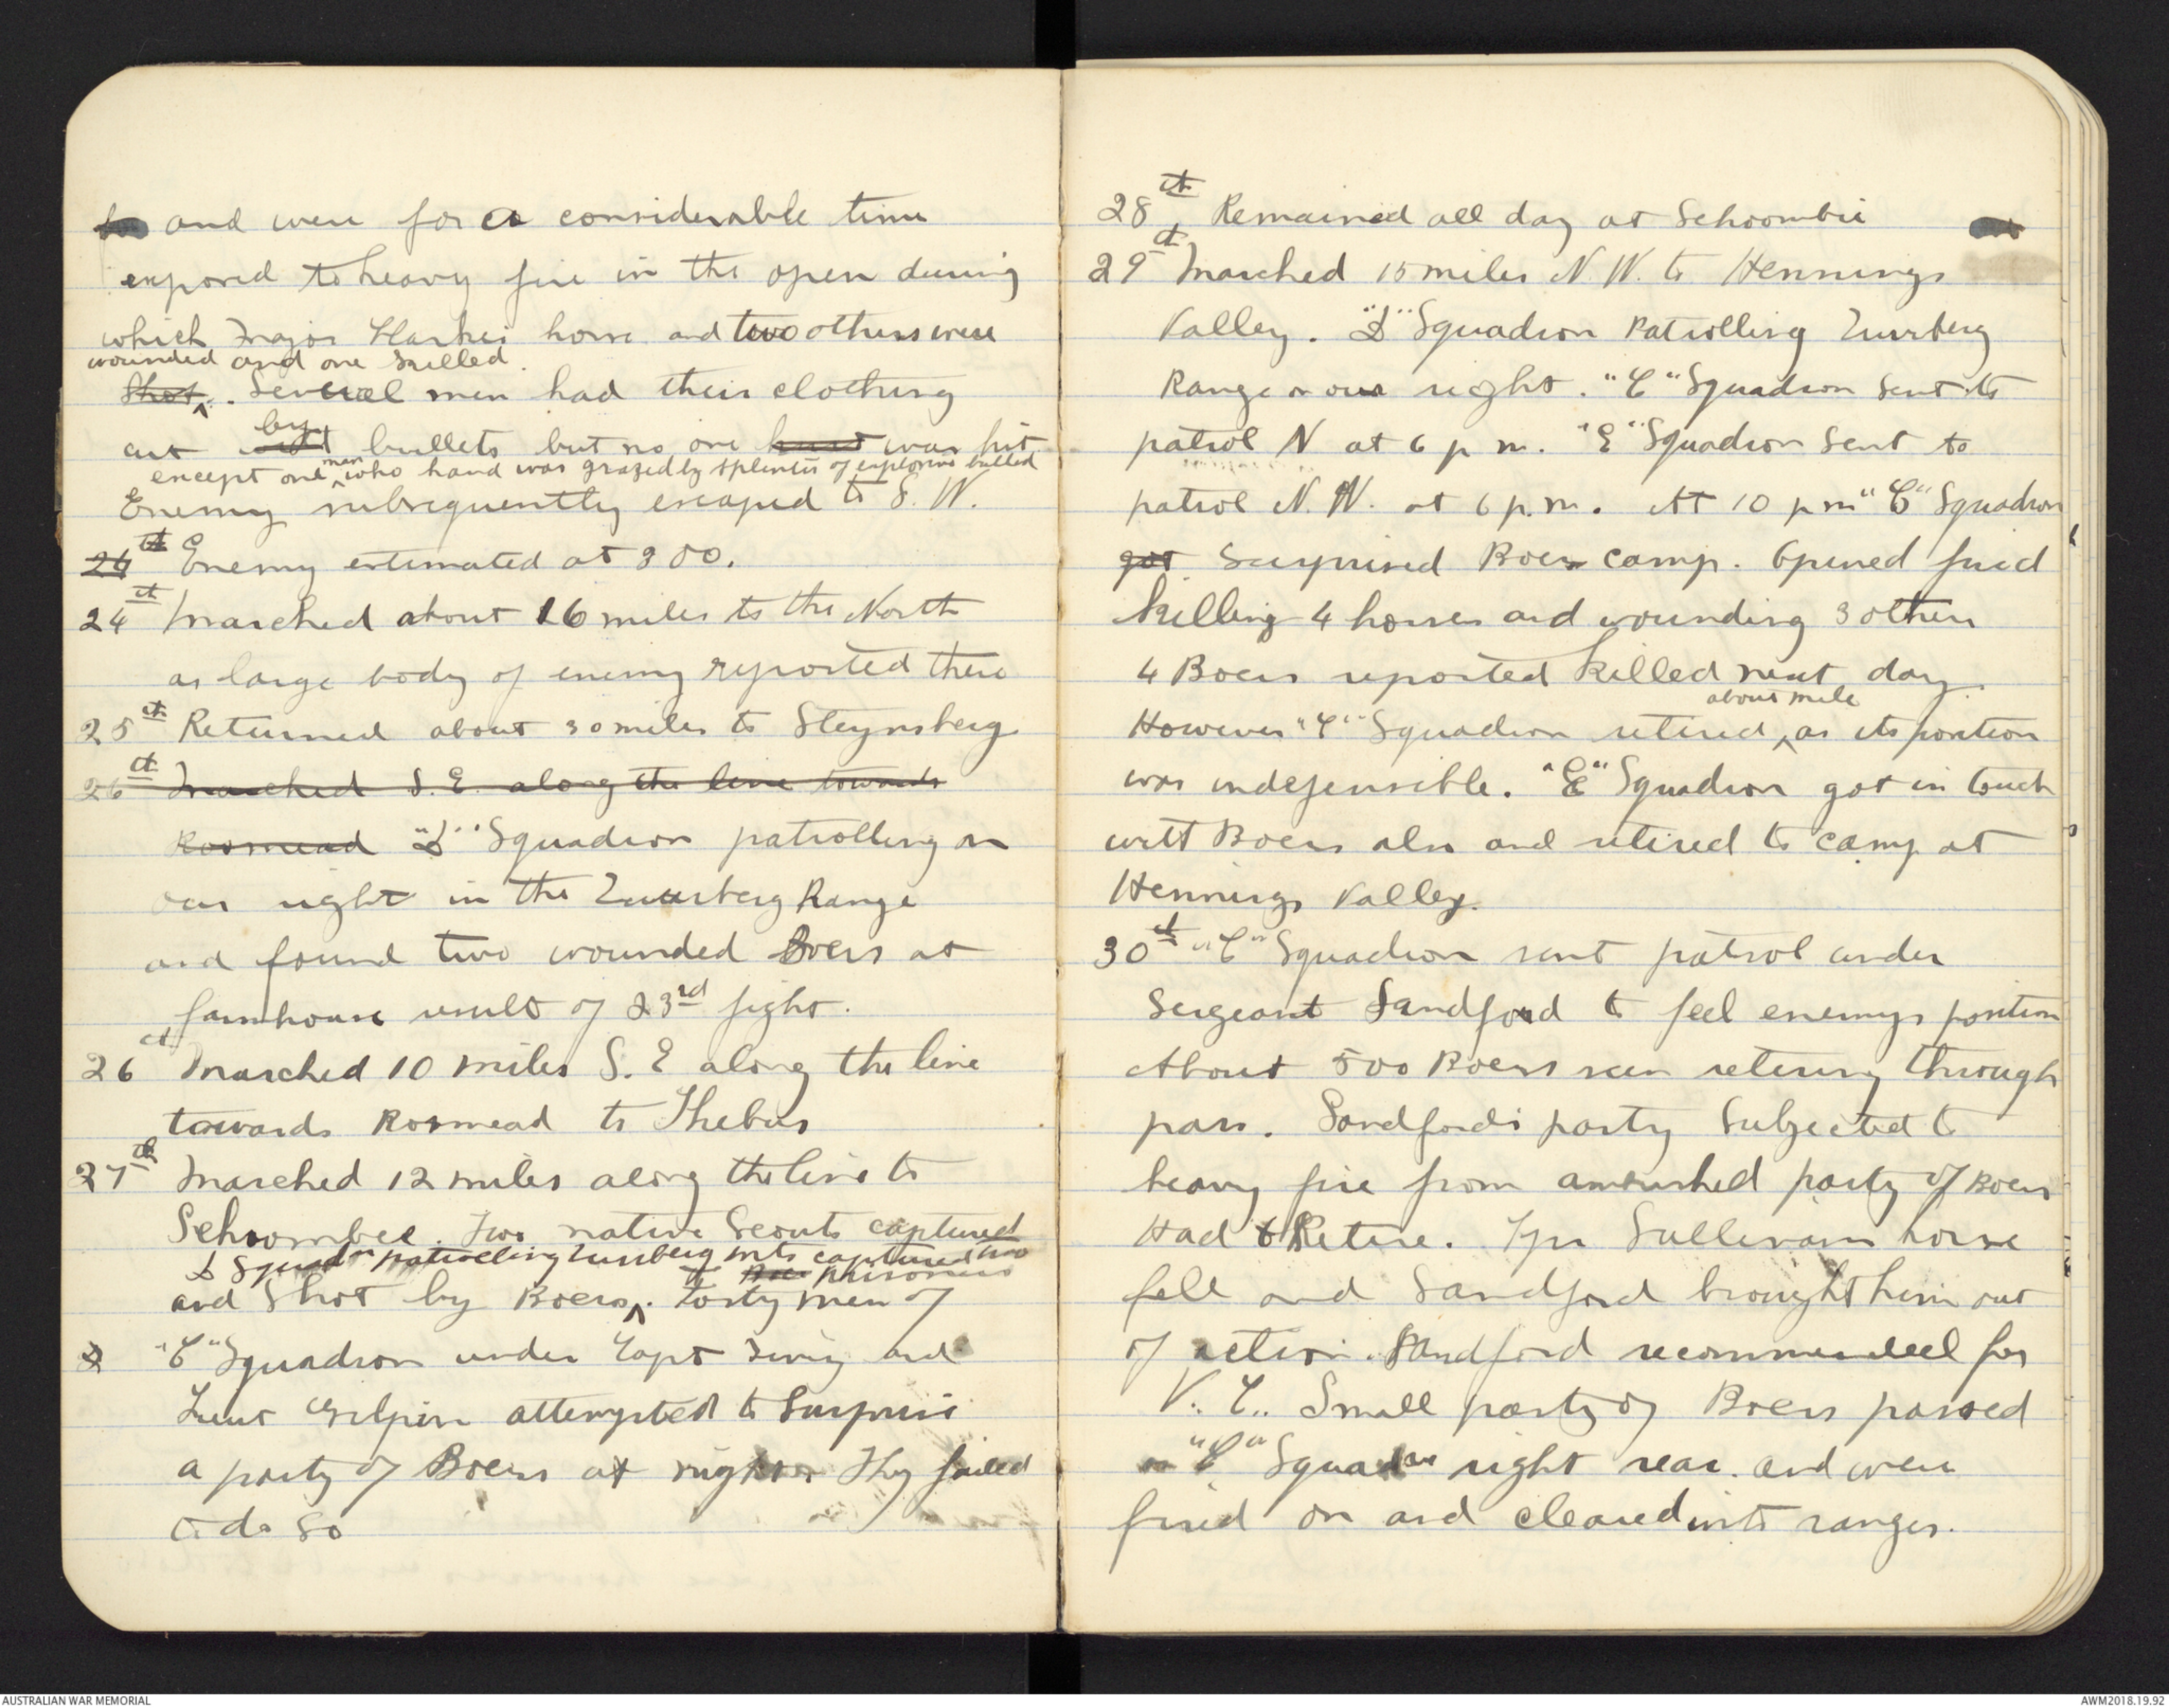 and were for a considerable time
exposed to heavy fire in the open during
which Major Harkers horse and two others were
wounded and one killed.
Shot. Several men had their clothing
by
cut bullets but no one was hit
except one man who hand was grazed by splinter of explosive bullet
Enemy subsequently escaped to S. W.
24th Enemy estimated at 300.
24th Marched about 16 miles to the North
as large body of enemy reported there
25th Returned about 30 miles to Steynsberg
26th Marched S. E. along the line towards
Rosmead "D" Squadron patrolling on
our right in the Zuurberg Range
and found two wounded Boers at
farmhouse result of 23rd fight.
26th Marched 10 miles S. E along the line
towards Rosmead to Thebus
27th Marched 12 miles along the line to
Schoombee. Two native Scouts captured
D Squadn patrolling Zuurberg mts captured two
Boer prisoners
and Shot by Boers. Forty men of
"C" Squadron under Capt and
Lieut Gilpin attempted to Surprise
a party of Boers at night. They failed
to do so
28th, Remained all day at Schoombie
29th Marched 15 miles N. W. to Hennings
Valley. "D" Squadron Patrolling Zuurberg
Range on our right. "C" Squadron Sent to
patrol N at 6 p m. "E" Squadron Sent to
patrol N. W. at 6 p.m. At 10 p m "C" Squadron
got Surprised Boer camp. Opened fired
killing 4 horses and wounding 3 others
4 Boers reported killed next day.
about mile
However "C" Squadron retired, as its position
was indefensible. "E" Squadron got in touch
with Boers also and retired to camp at
Hennings Valley.
30th "C" Squadron sent patrol under
Sergeant Sandford to feel enemys position
About 500 Boers seen retiring through
pass. Sandfords party Subjected to
heavy fire from ambushed party of Boers
Had to Retire. Tpr Sullivans horse
fell and Sandford brought him out
of action. Sandford recommended for
V. C.. Small party of Boers passed
on "C" Squadron right rear. and were
fired on and cleared into ranges.
AUSTRALIAN WAR MEMORIAL
AWM2018.19.92